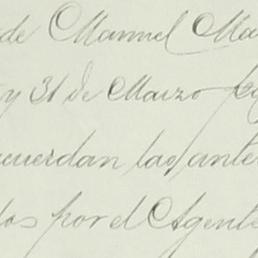 de Manuel Ma
y 31 de Marzo pa
cuerdan las ante
dos por el Agente